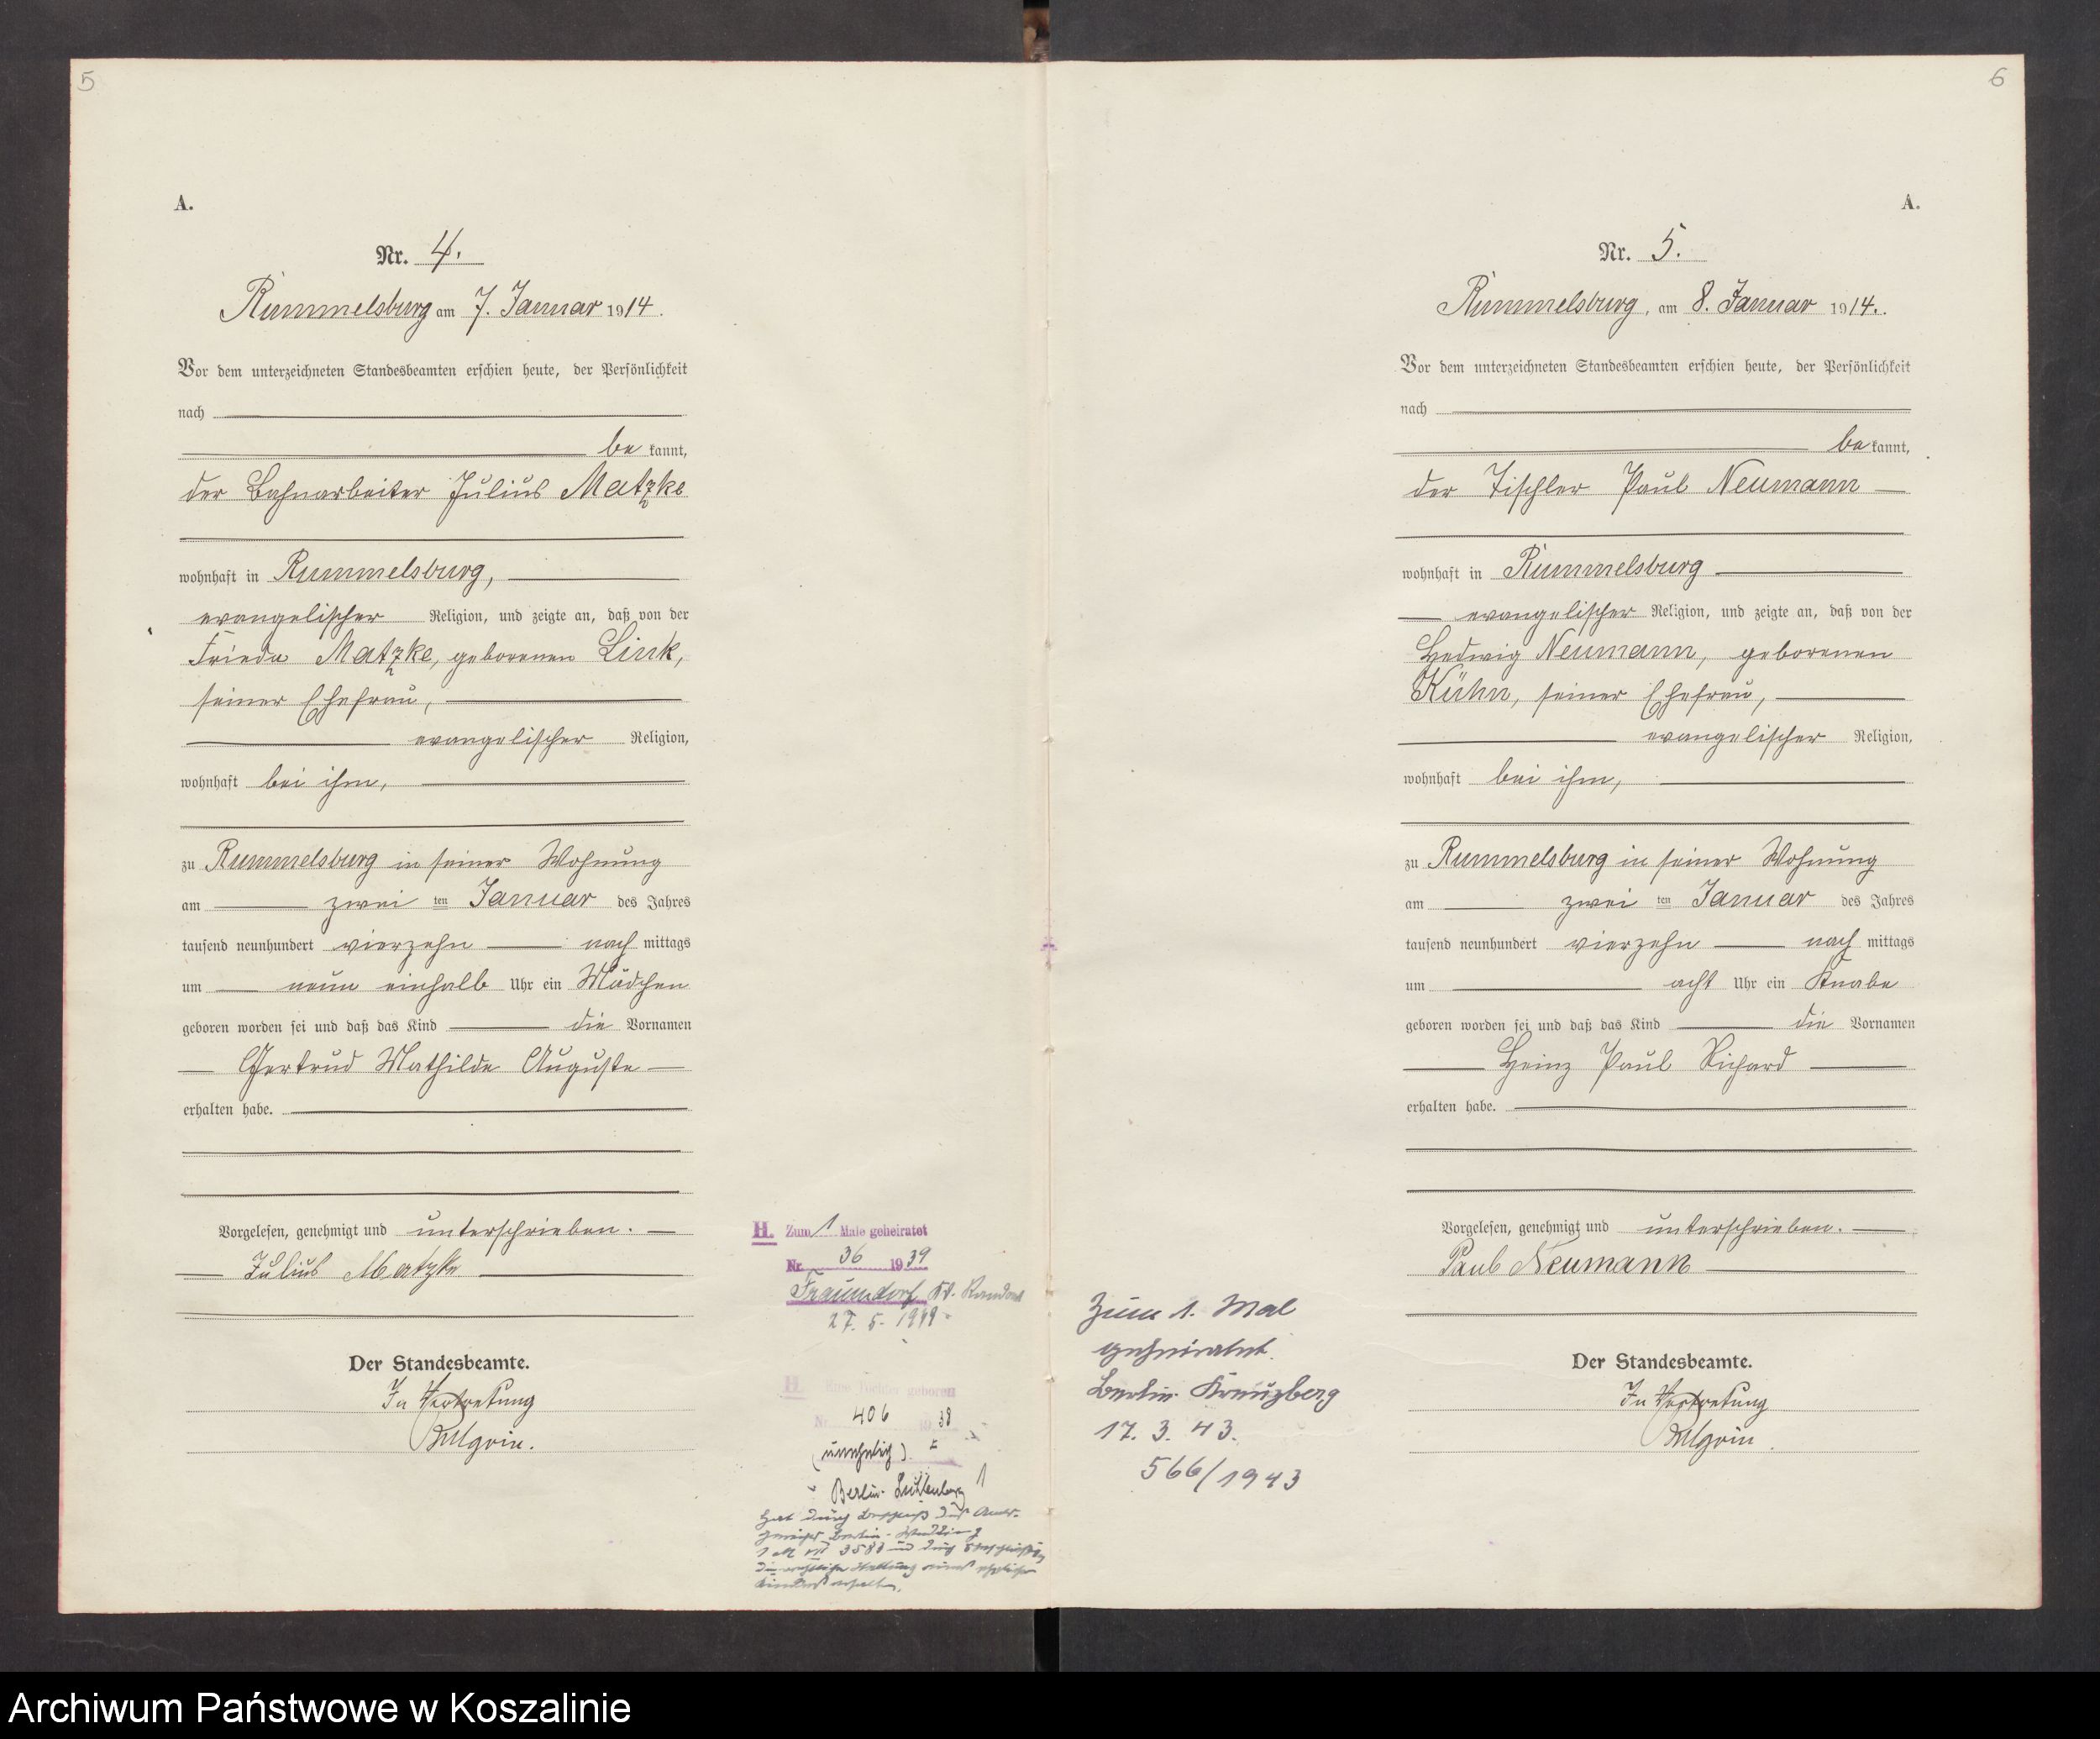 5
A.
Nr. 4.
Rummelsburg am 7. Januar 1914.
Vor dem unterzeichneten Standesbeamten erschien heute, der Persönlichkeit
nach
be kannt,
der Bahnarbeiter Julius Matzke
wohnhaft in Rummelsburg,
evangelischer Religion, und zeigte an, daß von der
Frieda Matzke, geborenen Link,
seiner Ehefrau,
evangelischer Religion,
wohnhaft bei ihm,
zu Rummelsburg in seiner Wohnung
am zwei ten Januar des Jahres
tausend neunhundert vierzehn nach mittags
um neun einhalb Uhr ein Mädchen
geboren worden sei und daß das Kind die Vornamen
Gertrud Mathilde Auguste
erhalten habe.
Vorgelesen, genehmigt und unterschrieben.
Julius Matzke
Der Standesbeamte.
In Vertretung
H. Zum 1 Male geheiratet
Nr. 36 1939
Frauendorf Kr. Randow
27. 5. 1939
H. Eine Tochter geboren
Nr. 406 1938
(unehelich)
Berlin-Lichtenberg 1
Hat durch Beschluß des Amts-
gerichts Berlin-Wedding
die rechtliche Stellung eines ehelichen
Kindes erhalten.
6
A.
Nr. 5.
Rummelsburg, am 8. Januar 1914.
Vor dem unterzeichneten Standesbeamten erschien heute, der Persönlichkeit
nach
be kannt,
der Tischler Paul Neumann
wohnhaft in Rummelsburg
evangelischer Religion, und zeigte an, daß von der
Hedwig Neumann, geborenen
Kühn, seiner Ehefrau,
evangelischer Religion,
wohnhaft bei ihm,
zu Rummelsburg in seiner Wohnung
am zwei ten Januar des Jahres
tausend neunhundert vierzehn nach mittags
um acht Uhr ein Knabe
geboren worden sei und daß das Kind die Vornamen
Heinz Paul Richard
erhalten habe.
Vorgelesen, genehmigt und unterschrieben.
Paul Neumann
Der Standesbeamte.
In Vertretung
Zum 1. Mal
geheiratet
Berlin Kreuzberg
17. 3. 43.
566/1943
Archiwum Państwowe w Koszalinie